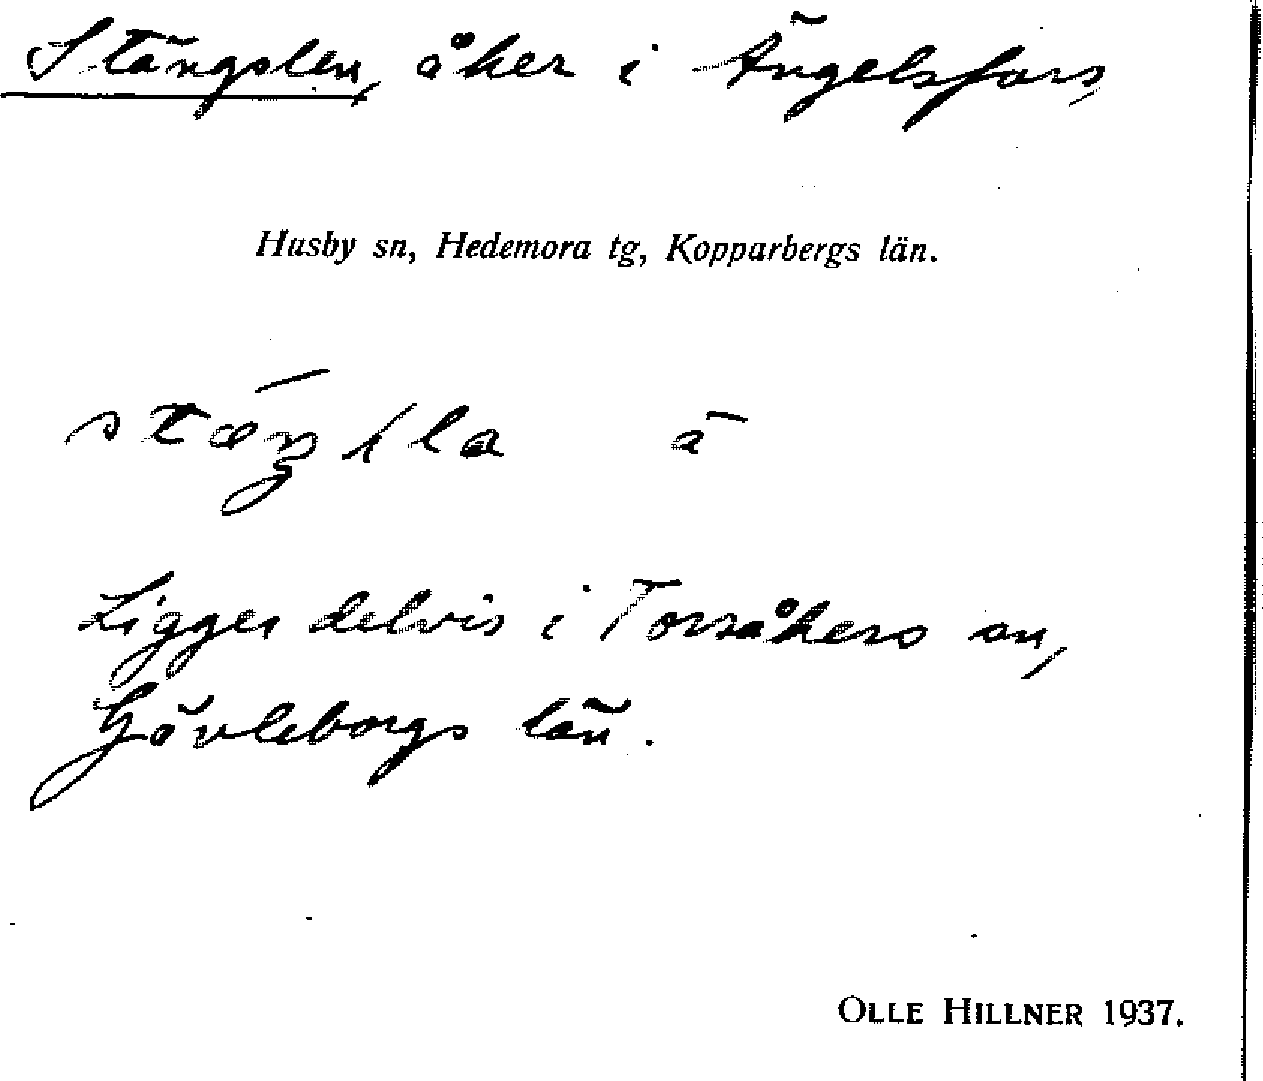 Stängslen, åker i Ängelsfors,
Husby sn, Hedemora tg, Kopparbergs län.
ā
Ligger delvis i Torsåkers sn,
Gävleborgs län.
OLLE HILLNER 1937.